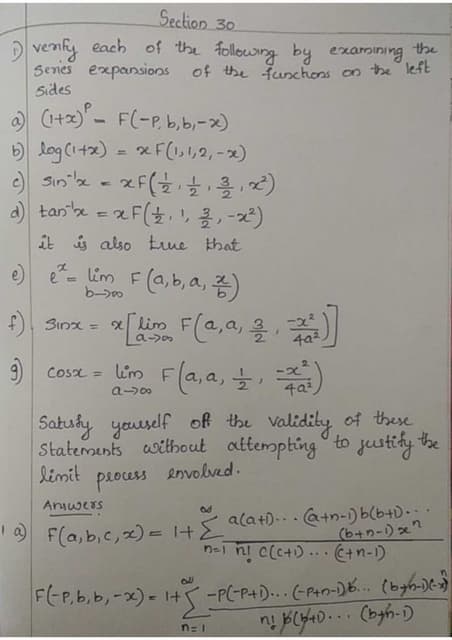 Section 30
1) verify each of the following by examining the
series expansions of the functions on the left
sides
a) (1+x)^p = F(-P, b, b, -x)
b) log(1+x) = x F(1, 1, 2, -x)
c) Sin⁻¹x = x F(1/2, 1/2, 3/2, x²)
d) tan⁻¹x = x F(1/2, 1, 3/2, -x²)
it is also true that
e) e^x = lim b→∞ F(a, b, a, x/b)
f) Sinx = x[lim a→∞ F(a, a, 3/2, -x²/4a²)]
g) Cosx = lim a→∞ F(a, a, 1/2, -x²/4a²)
Satisfy yourself off the validity of these
Statements without attempting to justify the
limit process envolved.
Answers
1 a) F(a, b, c, x) = 1 + ∞ Σ n=1 a(a+1)... (a+n-1) b(b+1)... (b+n-1) x^n / n! c(c+1) ... (c+n-1)
F(-P, b, b, -x) = 1 + ∞ Σ n=1 -P(-P+1)... (-P+n-1) b... (b+n-1)(-x)^n / n! b(b+1)... (b+n-1)